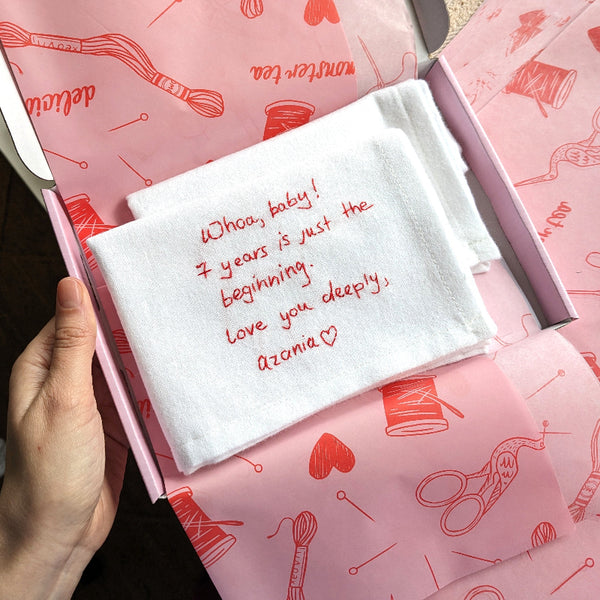 delicio
monster tea
Whoa, baby!
7 years is just the
beginning.
love you deeply,
azania♡